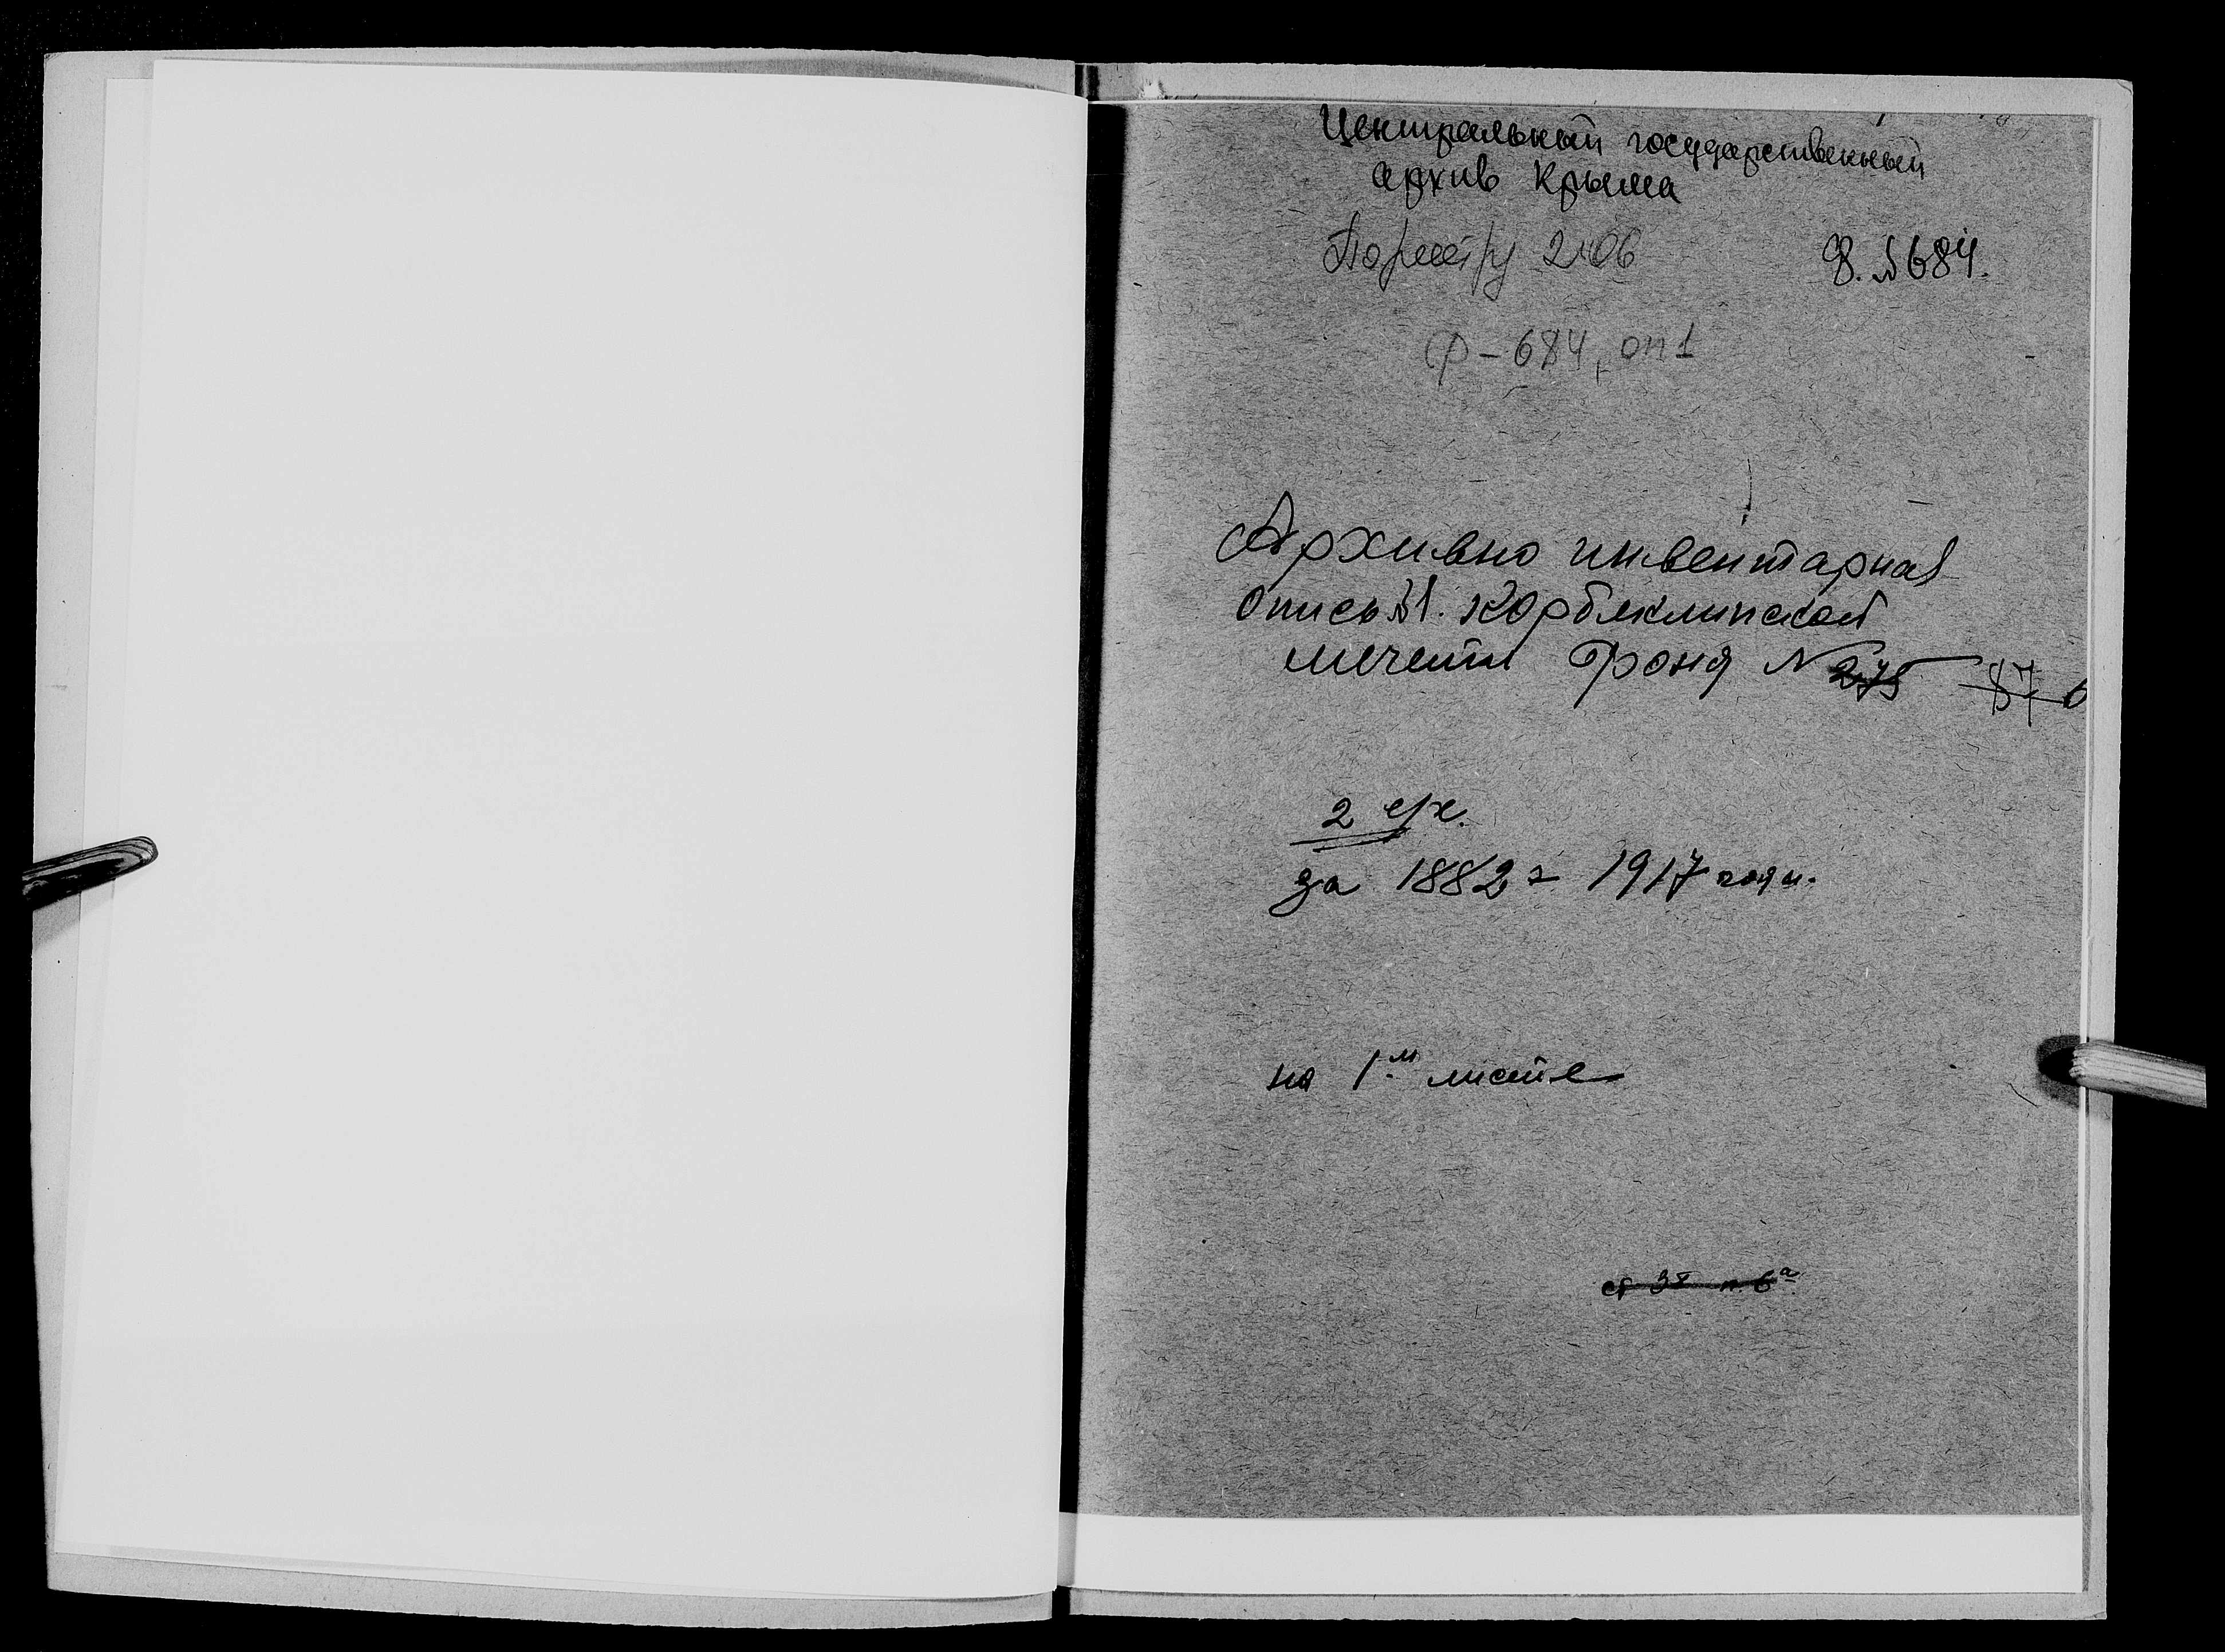 Центральный государственный
архив Крыма
2406
Ф. №684.
Ф-684, оп1
Архивно инвентарная
опись №1. Корбеклинской
мечети Фонд N 275
2 ед.х.
за 1882 = 1917 годы.
на 1.м листе